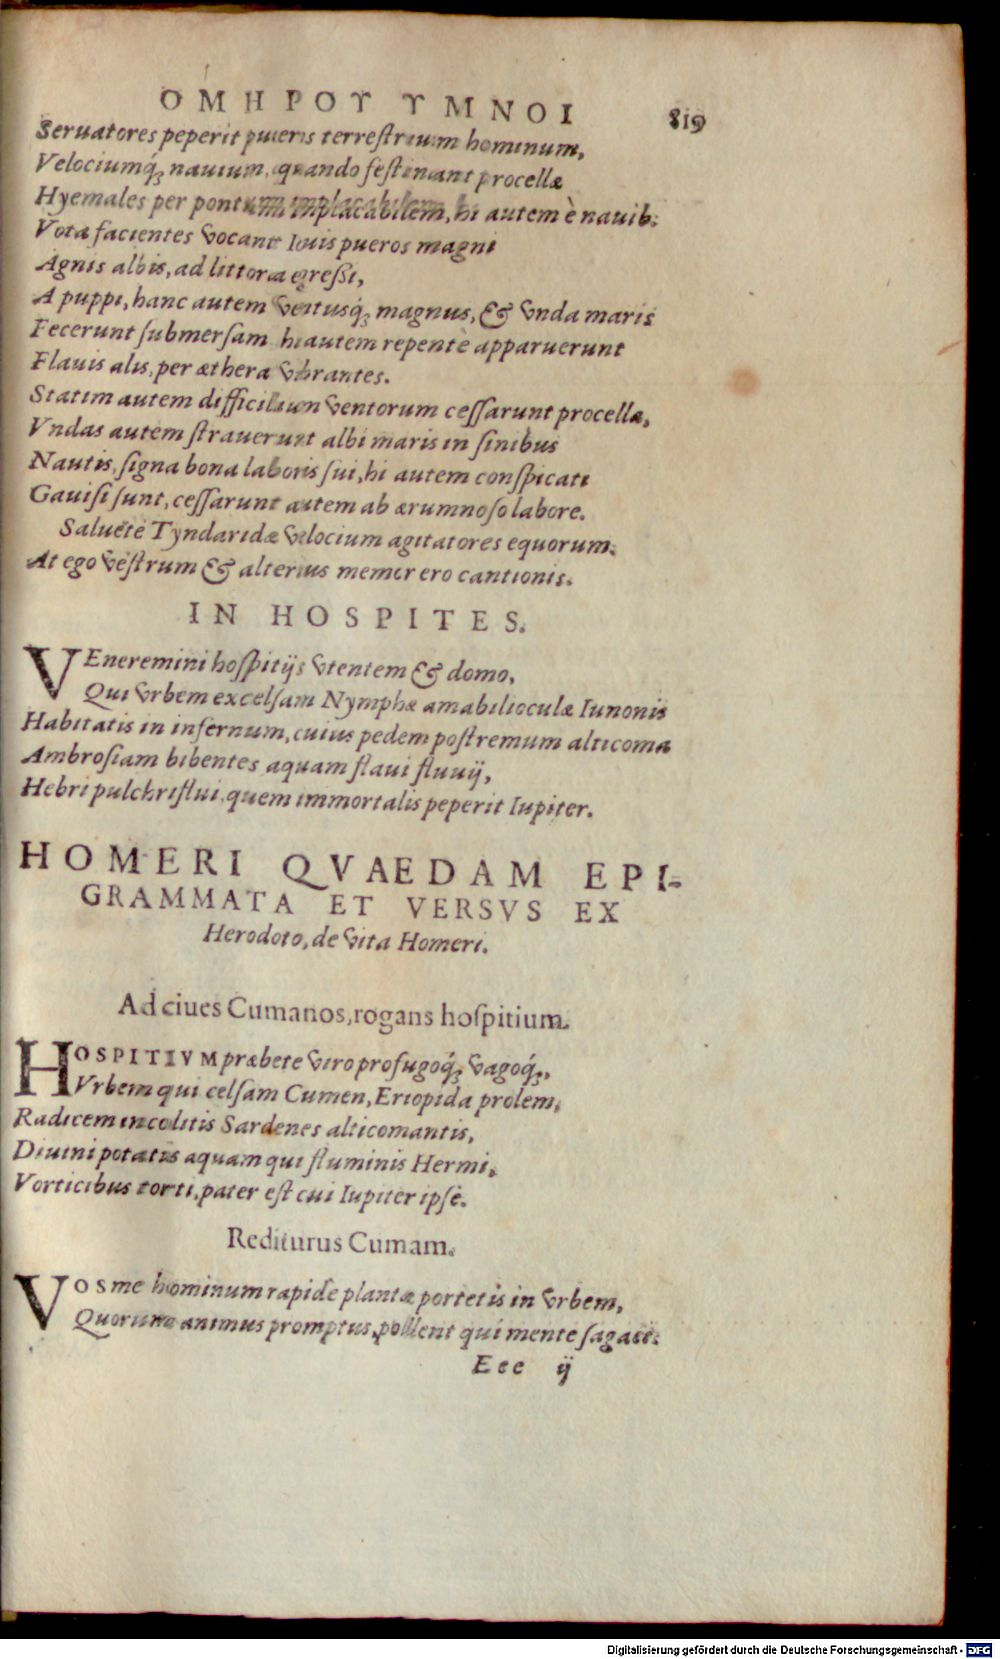 ΟΜΗΡΟΥ ΥΜΝΟΙ 819
Seruatores peperit pueris terrestrium hominum,
Velociumq́; nauium, quando festinant procellæ
Hyemales per pontum implacabilem, hi autem è nauib.
Vota facientes vocant Iouis pueros magni
Agnis albis, ad littora egreßi,
A puppi, hanc autem ventusq́; magnus, & vnda maris
Fecerunt submersam hi autem repente apparuerunt
Flauis alis, per æthera vibrantes.
Statim autem difficilium ventorum cessarunt procellæ,
Vndas autem strauerunt albi maris in sinibus
Nautis, signa bona laboris sui, hi autem conspicati
Gauisi sunt, cessarunt autem ab ærumnoso labore.
Saluete Tyndaridæ velocium agitatores equorum.
At ego vestrum & alterius memor ero cantionis.
IN HOSPITES.
VEneremini hospitijs vtentem & domo,
Qui vrbem excelsam Nymphæ amabilioculæ Iunonis
Habitatis in infernum, cuius pedem postremum alticoma
Ambrosiam bibentes aquam flaui fluuij,
Hebri pulchriflui, quem immortalis peperit Iupiter.
HOMERI QVAEDAM EPI-
GRAMMATA ET VERSVS EX
Herodoto, de vita Homeri.
Ad ciues Cumanos, rogans hospitium.
HOSPITIVM præbete viro profugoq́;, vagoq́;,
Vrbem qui celsam Cumen, Eriopida prolem,
Radicem incolitis Sardenes alticomantis,
Diuini potatis aquam qui fluminis Hermi,
Vorticibus torti, pater est cui Iupiter ipse.
Rediturus Cumam.
VOS me hominum rapidè plantæ portetis in vrbem,
Quorum animus promptus, pollent qui mente sagaci.
Eee ij
Digitalisierung gefördert durch die Deutsche Forschungsgemeinschaft - DFG